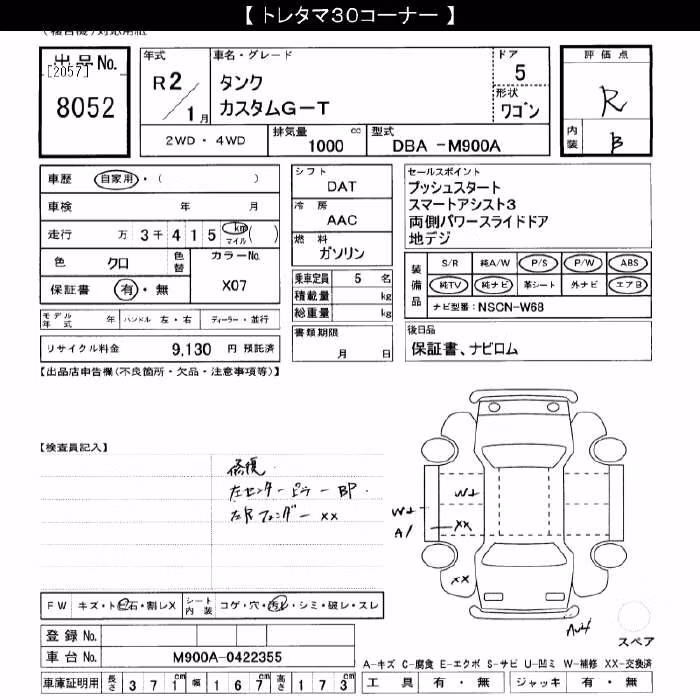 【 トレタマ30コーナー 】
出品No.
[2057]
8052
年式
R2/1月
車名・グレード
タンク
カスタムG-T
ドア
5
形状
ワゴン
評価点
R
内装
B
2WD・4WD
排気量
1000 cc
型式
DBA -M900A
車歴
自家用・( )
車検 年 月
走行 万 3千 4 1 5 km マイル ( )
色 クロ 色替
カラーNo.
X07
保証書 有・無
モデル年式 年 ハンドル 左・右 ディーラー・並行
リサイクル料金 9,130 円 預託済
シフト
DAT
冷房
AAC
燃料
ガソリン
乗車定員 5 名
積載量 kg
総重量 kg
書類期限
月 日
セールスポイント
プッシュスタート
スマートアシスト3
両側パワースライドドア
地デジ
装備品
S/R 純A/W P/S P/W ABS
純TV 純ナビ 革シート 外ナビ エアB
ナビ型番: NSCN-W68
後日品
保証書、ナビロム
【出品店申告欄(不良箇所・欠品・注意事項等)】
【検査員記入】
修復
左センターピラーBP.
左Rフェンダー xx
W2
W2
A1
XX
XX
FW キズ・トビ石・割レX
シート内装 コゲ・穴・汚レ・シミ・破レ・スレ
登録No.
車台No. M900A-0422355
車庫証明用 長さ 371 幅 167 高さ 173
スペア
A-キズ C-腐食 E-エクボ S-サビ U-凹ミ W-補修 XX-交換済
工具 有・無 ジャッキ 有・無